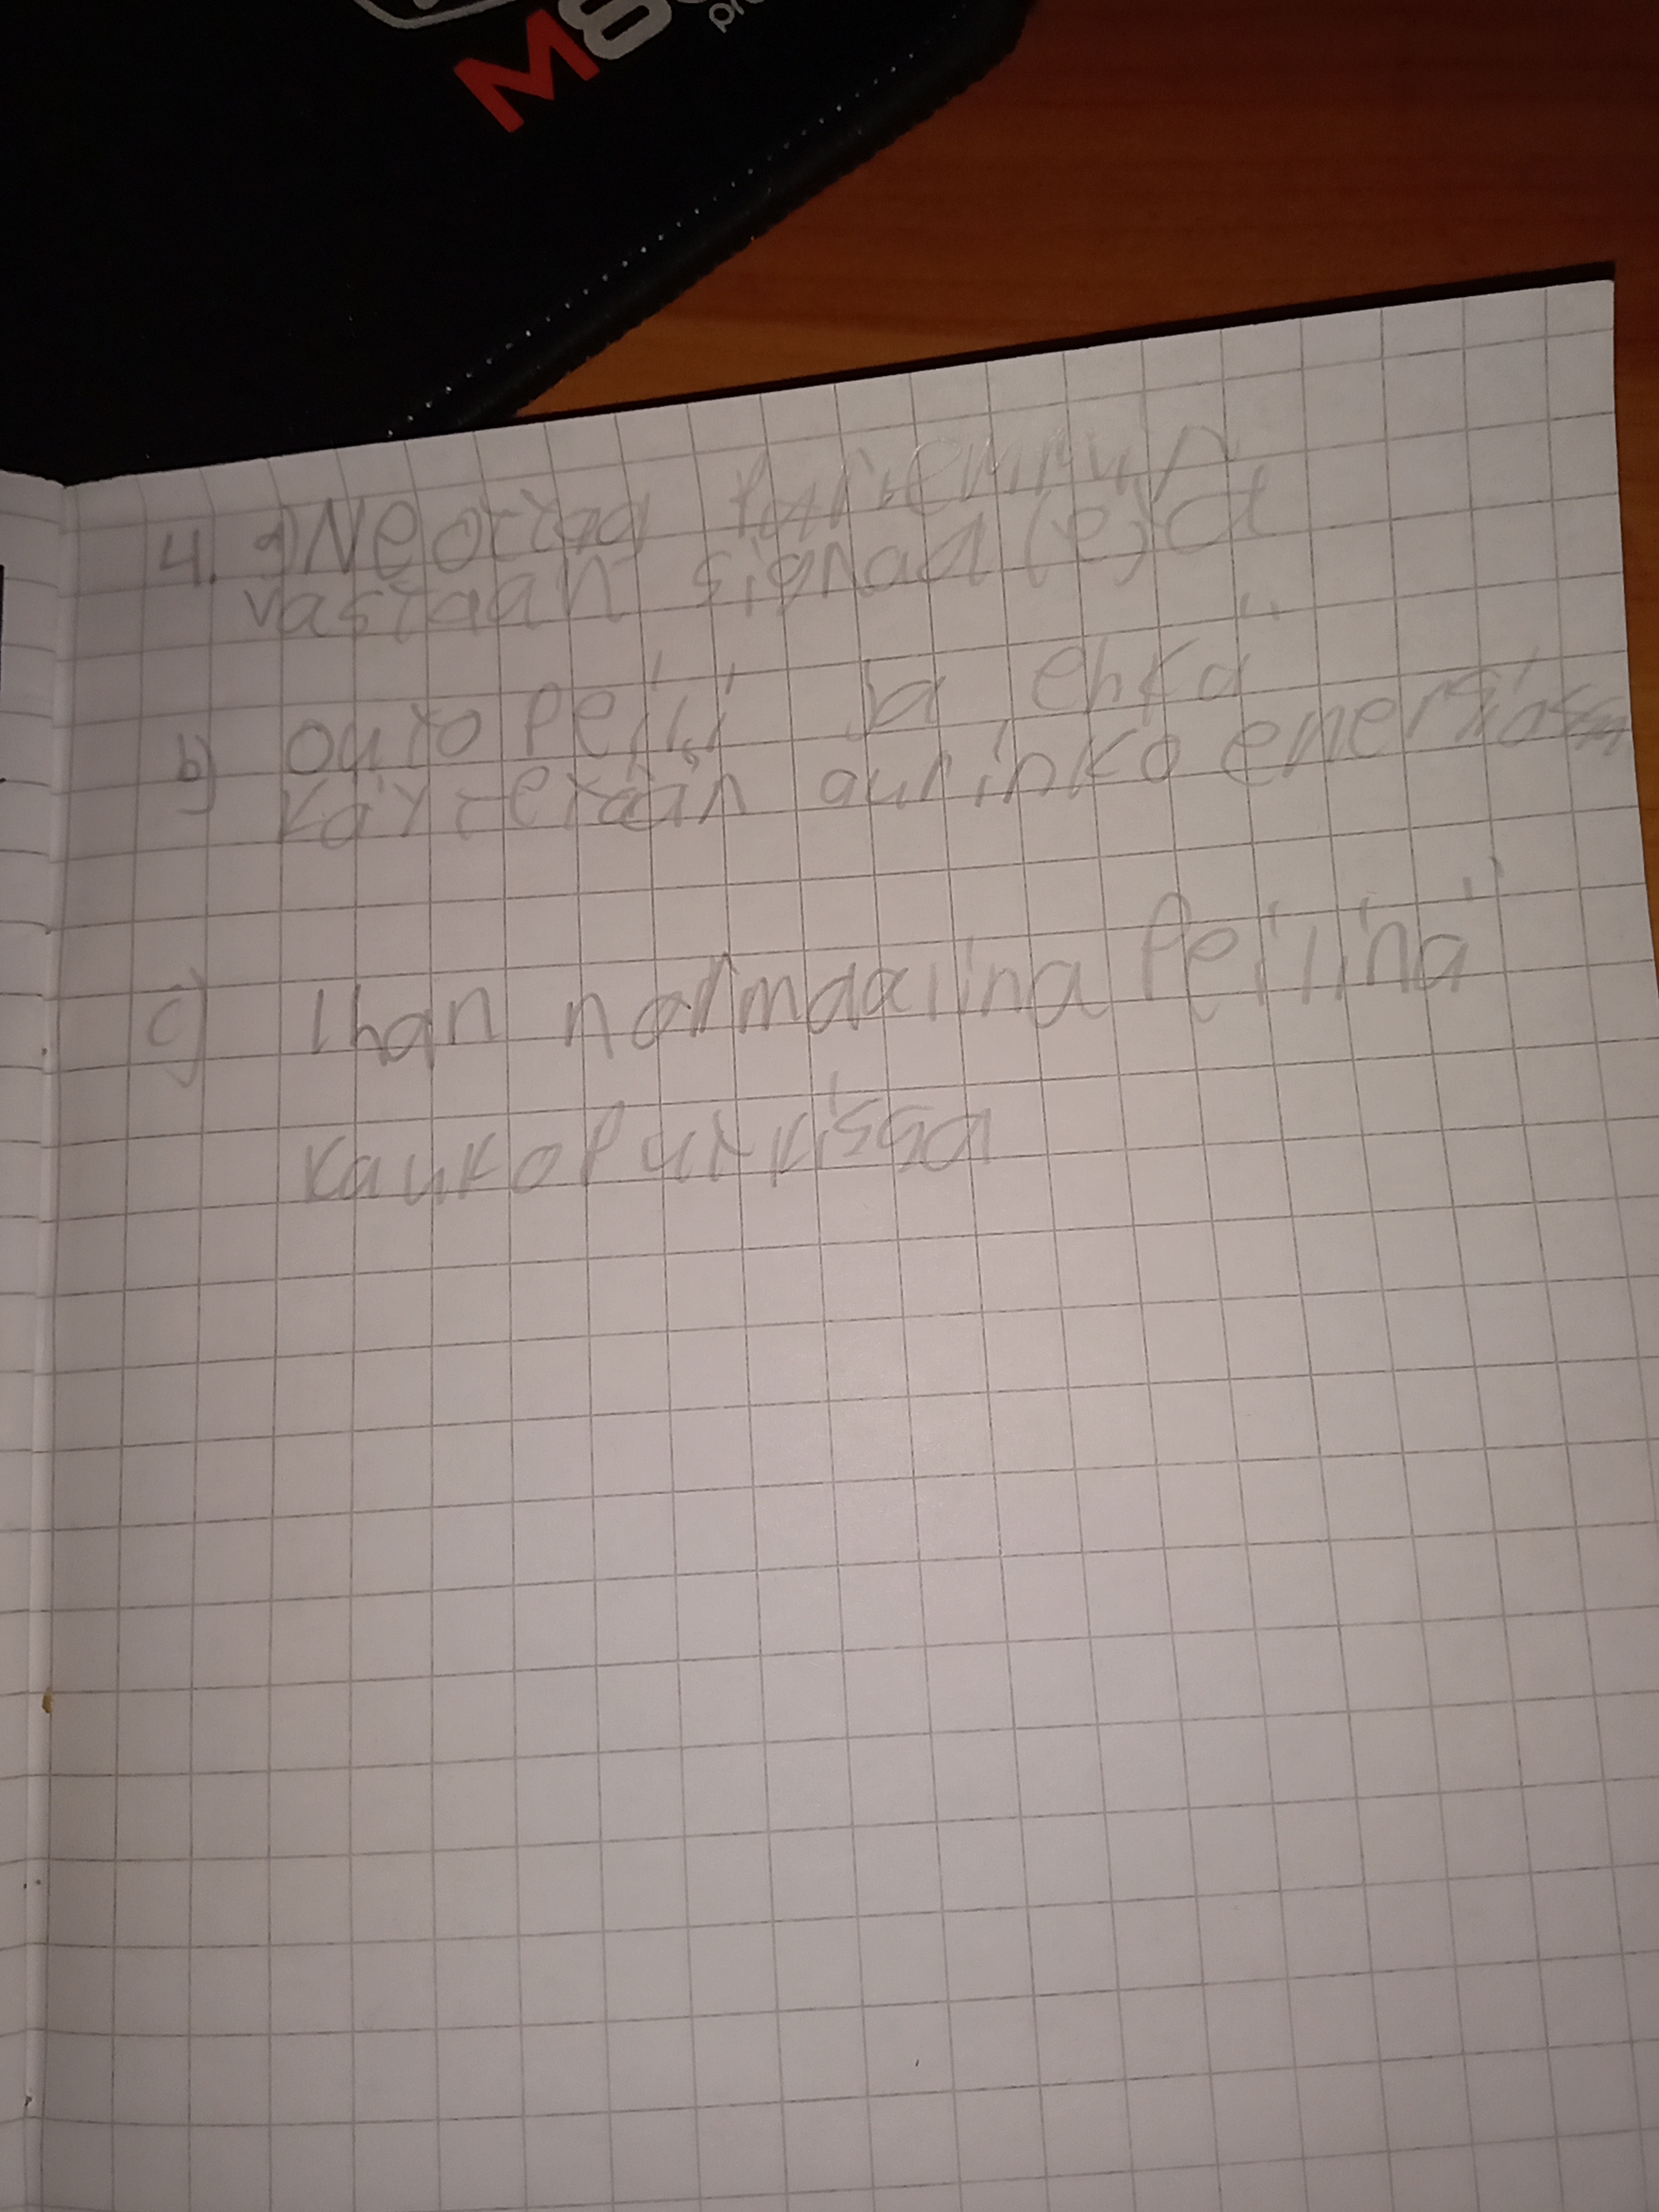 M8
4. a) Ne ottaa paremmin
vastaan signaaleja
b) auto peili ja ehkä
käytetään aurinko energiassa
c) Ihan normaalina peilinä
kaukoputkissa